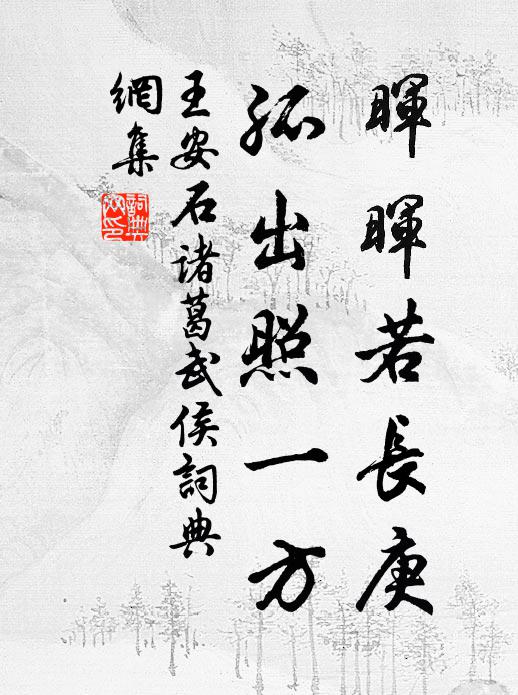 暉暉若長庚
孤出照一方
王安石诸葛武侯詞典
網集
詞典